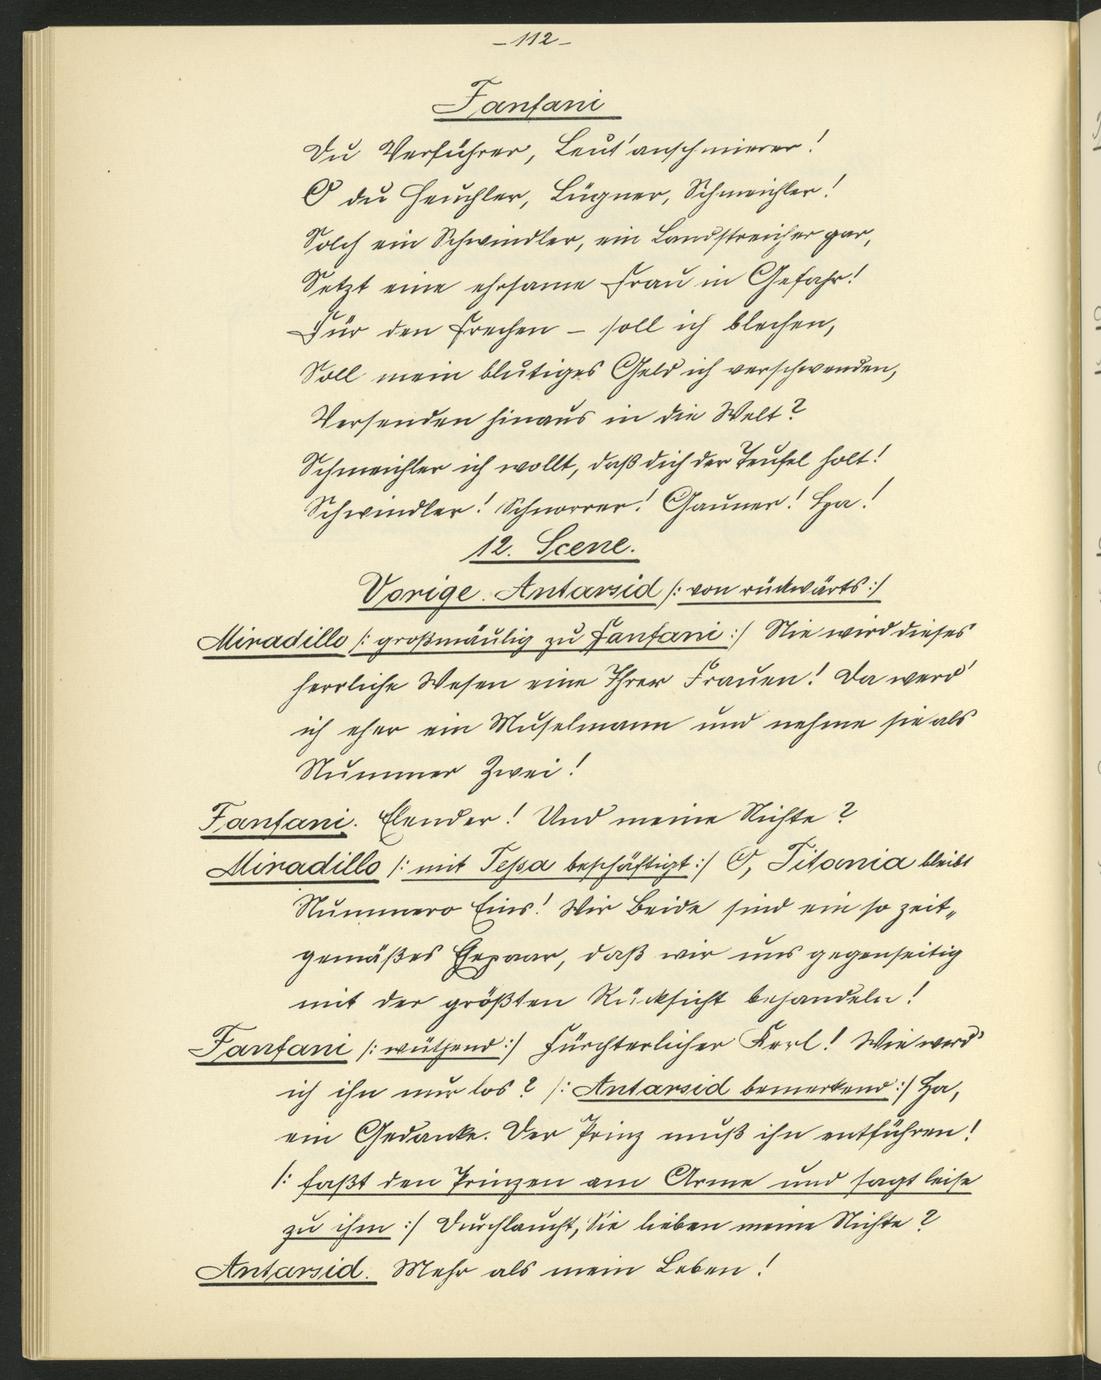 -112-
Fanfani
Du Verführer, Leut'anschmierer!
O du Heuchler, Lügner, Schmeichler!
Solch ein Schwindler, ein Landstreicher gar,
Setzt eine ehrsame Frau in Gefahr!
Für den Frechen – soll ich blechen,
Soll mein blutiges Geld ich verschwenden,
Versenden hinaus in die Welt?
Schmeichler ich wollt, daß dich der Teufel holt!
Schwindler! Schnorrer! Gauner! Ha!
12. Scene.
Vorige. Antarsid /: von rückwärts :/
Miradillo /: großmäulig zu Fanfani :/ Nie wird dieses
herrliche Wesen eine Ihrer Frauen! Da werd'
ich eher ein Muselmann und nehme sie als
Nummer Zwei!
Fanfani. Elender! Und meine Nichte?
Miradillo /: mit Tessa beschäftigt :/ O, Titania bleibt
Nummero Eins! Wir Beide sind ein so zeit„
gemäßes Ehepaar, daß wir uns gegenseitig
mit der größten Rücksicht behandeln!
Fanfani /: wüthend :/ Fürchterlicher Kerl! Wie werd'
ich ihn nur los? /: Antarsid bemerkend :/ Ha,
ein Gedanke. Der Prinz muß ihn entführen!
/: faßt den Prinzen am Arme und sagt leise
zu ihm :/ Durchlaucht, Sie lieben meine Nichte?
Antarsid. Mehr als mein Leben!